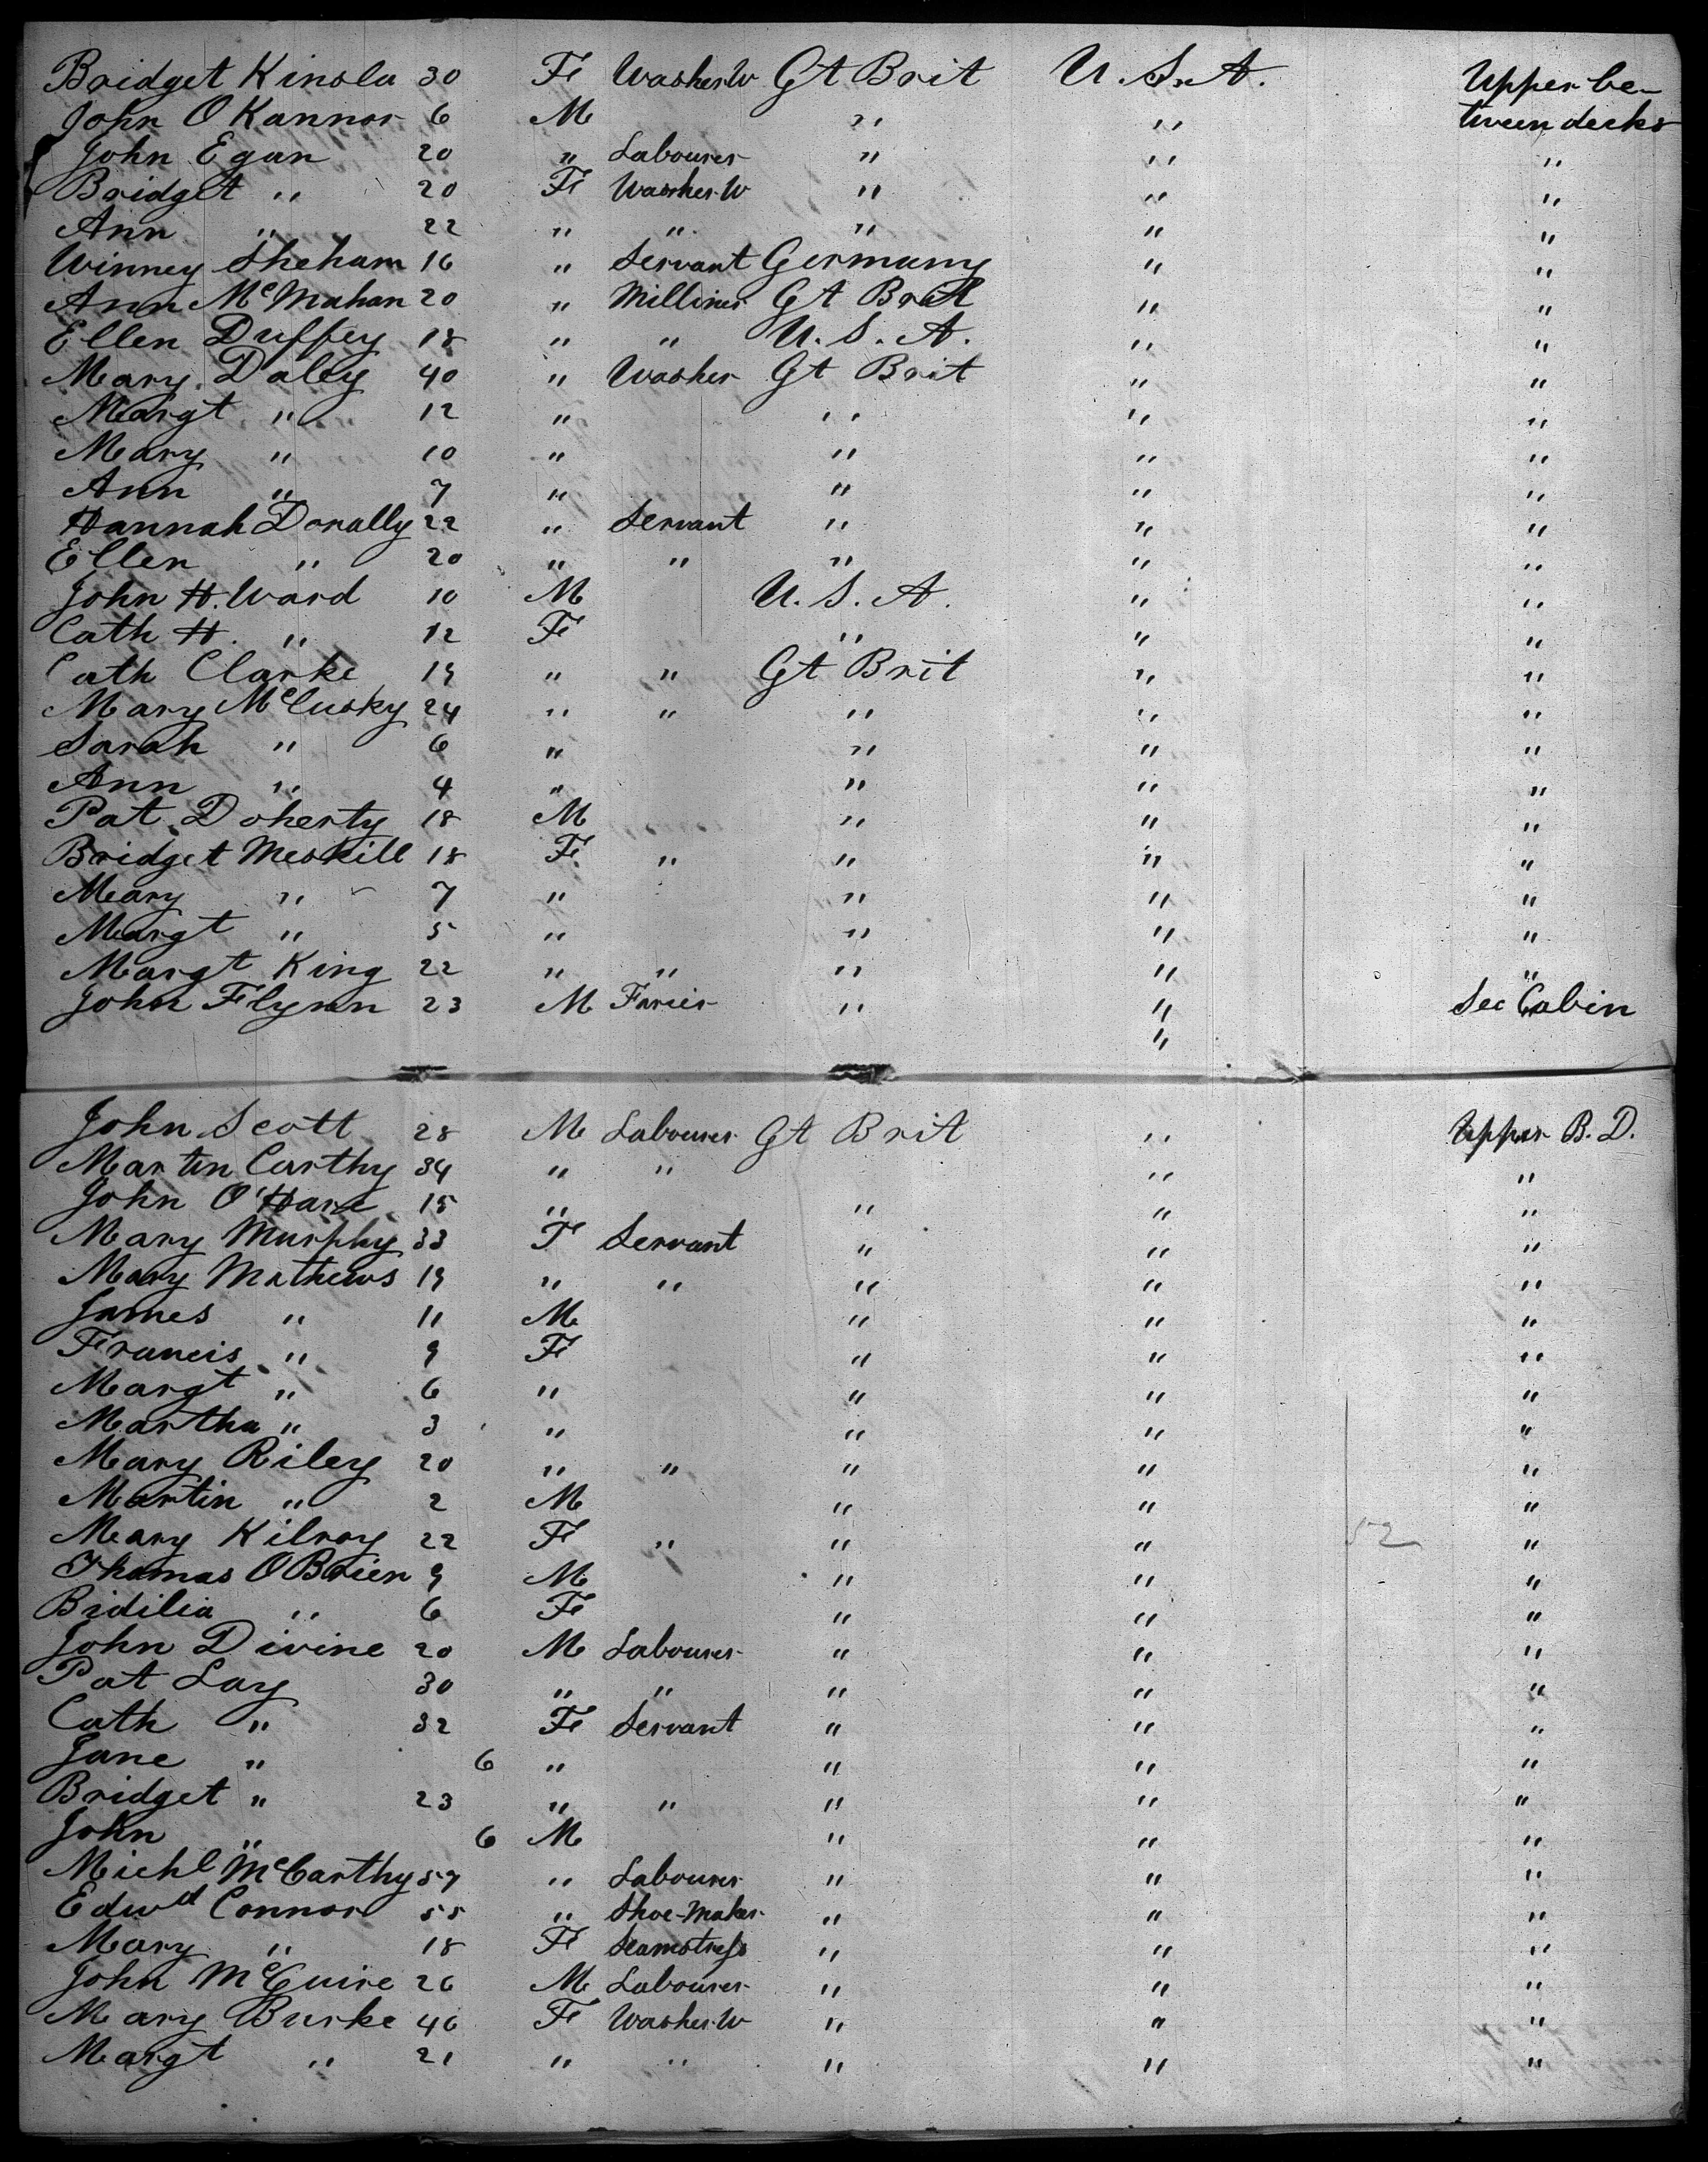 Bridget Kinsla 30 Fe Washer W Gt Brit U. S. A. Upper be-
John O Kannor 6 M " " tween decks
John Egan 20 " Labourer " " "
Bridget " 20 Fe Washer W " " "
Ann " 22 " " " " "
Winney Sheham 16 " Servant Germany " "
Ann McMahan 20 " Milliner Gt Brit " "
Ellen Duffey 18 " " U. S. A. " "
Mary Daley 40 " Washer Gt Brit " "
Margt " 12 " " " "
Mary " 10 " " " "
Ann " 7 " " " "
Hannah Donally 22 " Servant " " "
Ellen " 20 " " " " "
John H. Ward 10 M U. S. A. " "
Cath H. " 12 Fe " " "
Cath Clarke 19 " " Gt Brit " "
Mary McClusky 24 " " " " "
Sarah " 6 " " " "
Ann " 4 " " " "
Pat Doherty 18 M " " "
Bridget Meskill 18 Fe " " " "
Mary " 7 " " " "
Margt " 5 " " " "
Margt King 22 " " " " "
John Flynn 23 M Farier " " Sec Cabin
"
John Scott 28 M Labourer Gt Brit " Upper B. D.
Martin Carthy 34 " " " "
John O'Hare 15 " " " "
Mary Murphy 33 F Servant " " "
Mary Mathews 19 " " " " "
James " 11 M " " "
Francis " 9 Fe " " "
Margt " 6 " " " "
Martha " 3 " " " "
Mary Riley 20 " " " " "
Martin " 2 M " " "
Mary Kilroy 22 Fe " " " 52 "
Thomas OBrien 9 M " " "
Bidilia " 6 Fe " " "
John Divine 20 M Labourer " " "
Pat Lay 30 " " " " "
Cath " 32 Fe Servant " " "
Jane " 6 " " " "
Bridget " 23 " " " " "
John " 6 M " " "
Michl McCarthy 57 " Labourer " " "
Edwd Connor 55 " Shoe-Maker " " "
Mary " 18 Fe Seamstress " " "
John McGuire 26 M Labourer " " "
Mary Burke 46 Fe Washer W " " "
Margt " 21 " " " " "